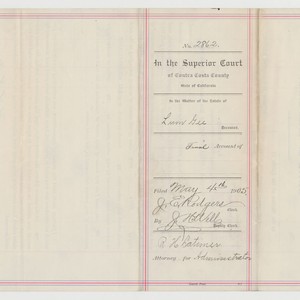 No. 2862
In the Superior Court
of Contra Costa County
State of California
In the Matter of the Estate of
Deceased
Account of
Filed May 4th 1905
J. E. Rodgers
Clerk
By
Deputy Clerk
Attorney for Administrator